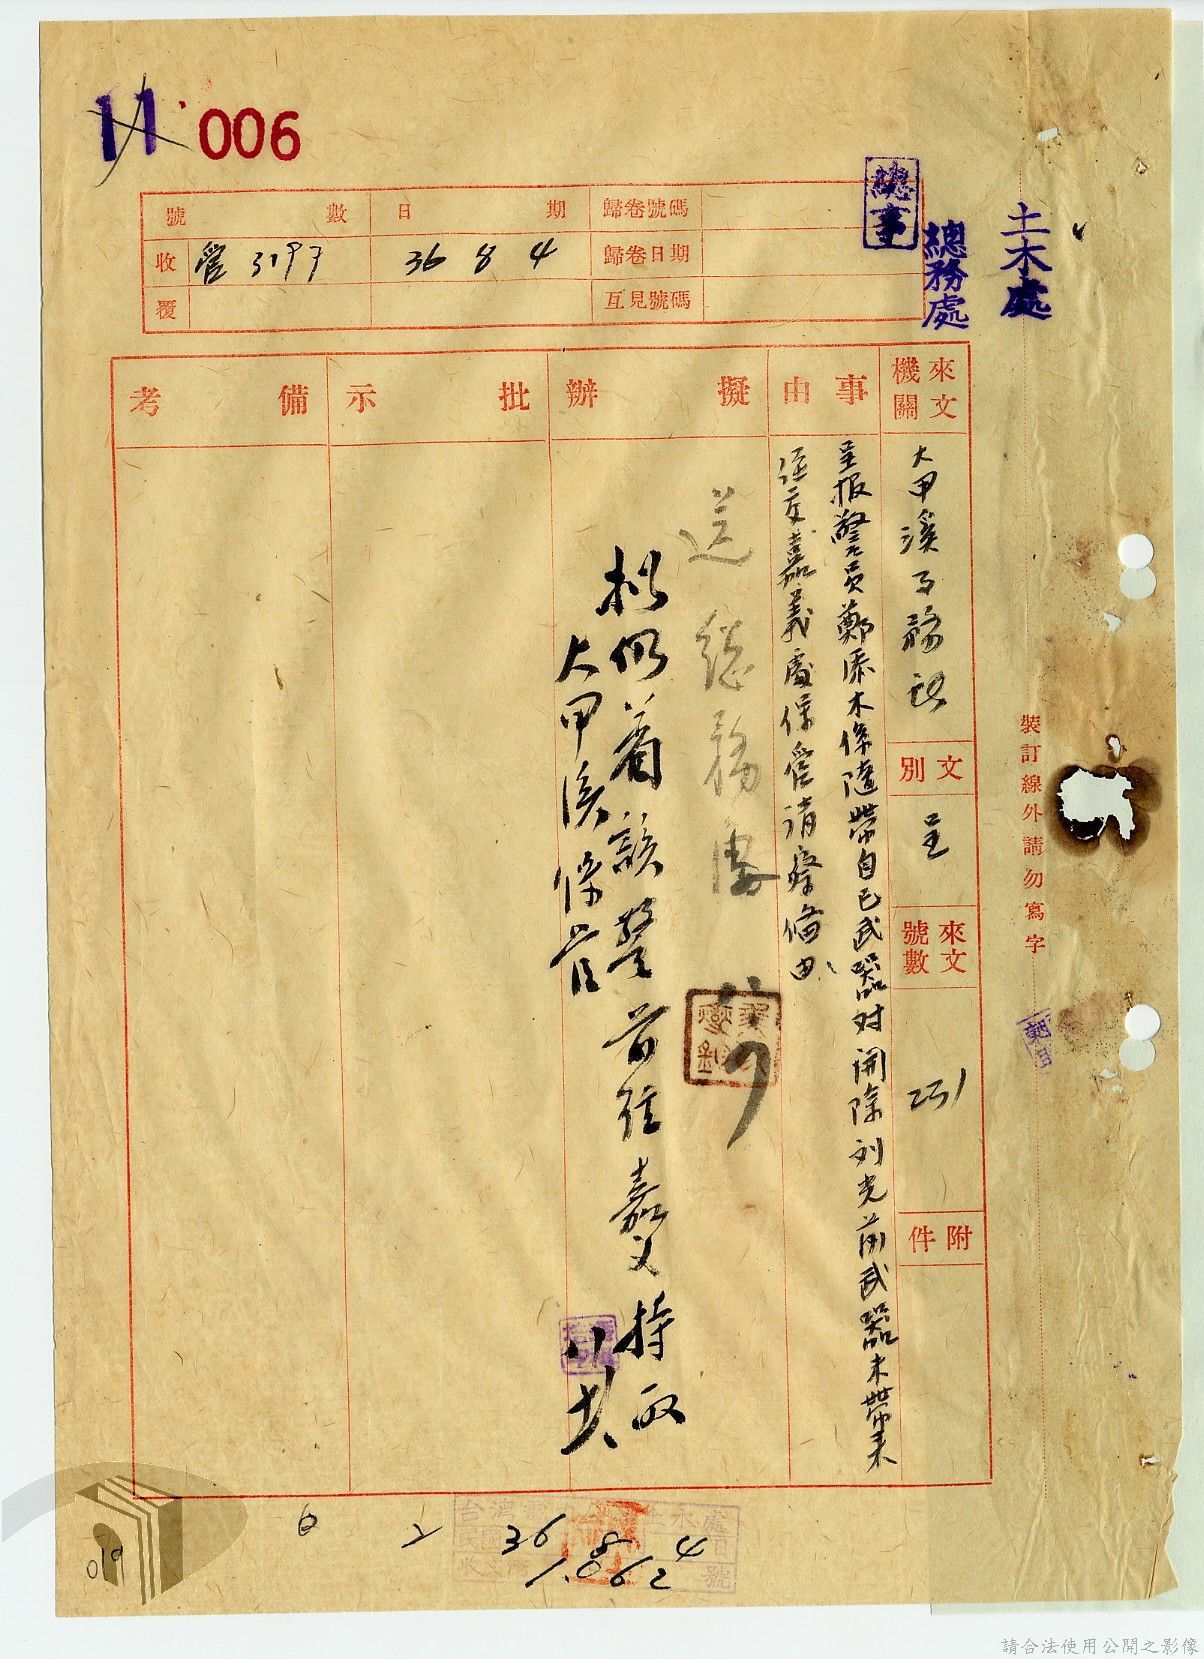 11 006
號數 日期 歸卷號碼
收 管 3197 36 8 4 歸卷日期
覆 互見號碼
總事
總務處
土木處
來文機關
事由
擬辦
批示
備考
大甲溪事務所
文別
呈
來文號數
251
附件
呈报警員鄭添木係隨帶自己武器对開除刘光前武器未帶来
經交嘉義處保管請察偹由
送總務處
拟仍着該警前往嘉义持取
大甲溪保管
裝訂線外請勿寫字
36 8 4
1.0862
019
請合法使用公開之影像